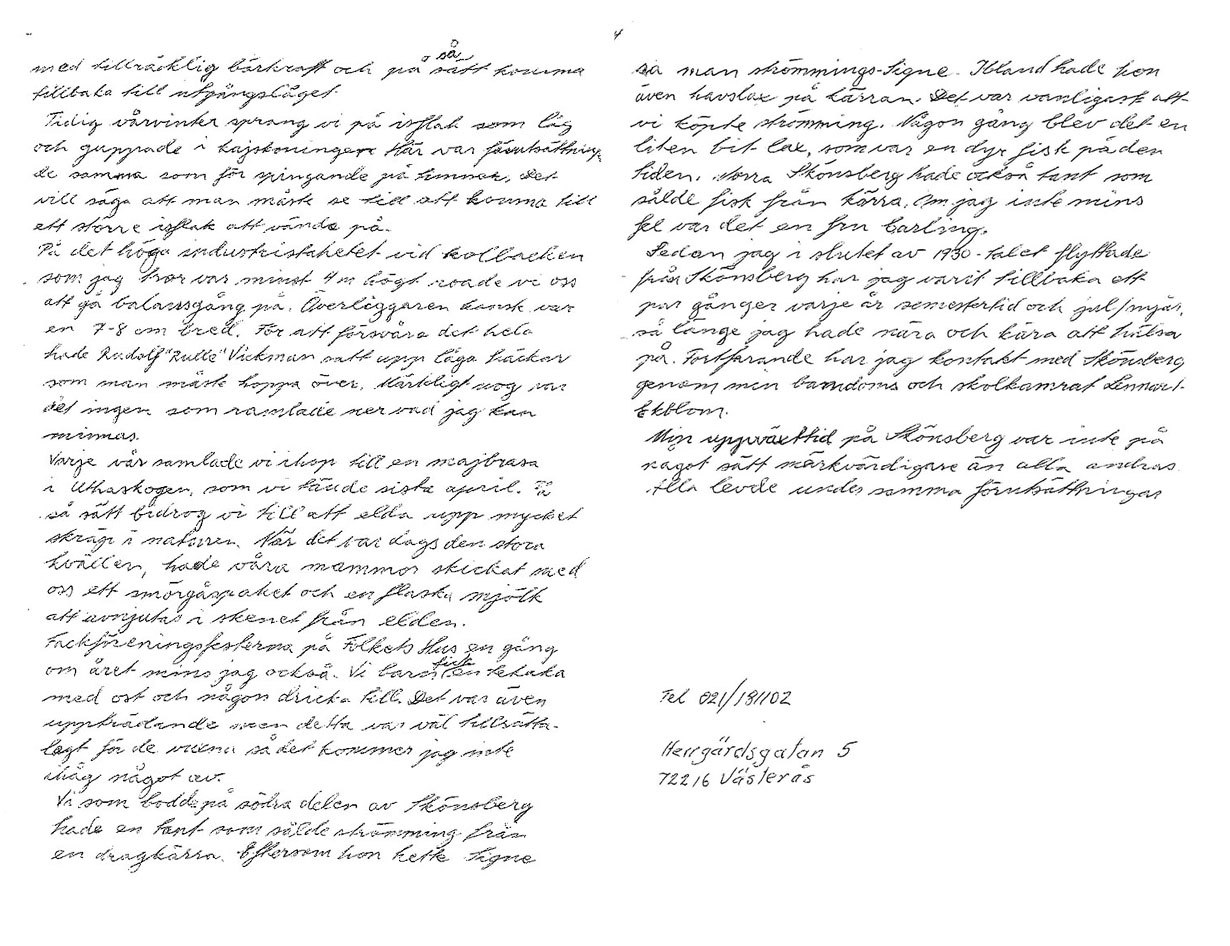 med tillräcklig bärkraft och på så sätt komma
tillbaka till utgångsläget.
Tidig vårvinter sprang vi på isflak som låg
och guppade i kajskoningen. Här var förutsättningar
de samma som för springande på timmer. Det
vill säga att man måste se till att komma till
ett större isflak att vända på.
På det höga industristaketet vid kolbacken
som jag tror var minst 4 m högt roade vi oss
att gå balansgång på. Överliggaren kanske var
en 7-8 cm bred. För att försvåra det hela
hade Rudolf "Rulle" Vickman satt upp låga häckar
som man måste hoppa över. Märkligt nog var
det ingen som ramlade ner vad jag kan
minnas.
Varje vår samlade vi ihop till en majbrasa
i Uthaskogen, som vi tände sista april. På
så sätt bidrog vi till att elda upp mycket
skräp i naturen. När det var dags den stora
kvällen, hade våra mammor skickat med
oss ett smörgåspaket och en flaska mjölk
att avnjutas i skenet från elden.
Fackföreningsfesterna på Folkets Hus en gång
om året mins jag också. Vi barn fick en tekaka
med ost och någon dricka till. Det var även
uppträdande men detta var väl tillrätta-
lagt för de vuxna så det kommer jag inte
ihåg något av.
Vi som bodde på södra delen av Skönsberg
hade en tant som sålde strömming från
en dragkärra. Eftersom hon hette Signe
4
sa man strömmings-Signe. Ibland hade hon
även havslax på kärran. Det var vanligast att
vi köpte strömming. Någon gång blev det en
liten bit lax, som var en dyr fisk på den
tiden. Norra Skönsberg hade också tant som
sålde fisk från kärra. Om jag inte mins
fel var det en fru Carling.
Sedan jag i slutet av 1930-talet flyttade
från Skönsberg har jag varit tillbaka ett
par gånger varje år semestertid och jul/nyår,
så länge jag hade nära och kära att hälsa
på. Fortfarande har jag kontakt med Skönsberg
genom min barndoms och skolkamrat Lennart
Ekblom.
Min uppväxttid på Skönsberg var inte på
något sätt märkvärdigare än alla andras.
Alla levde under samma förutsättningar
Tel 021/181102
Herrgärdsgatan 5
72216 Västerås